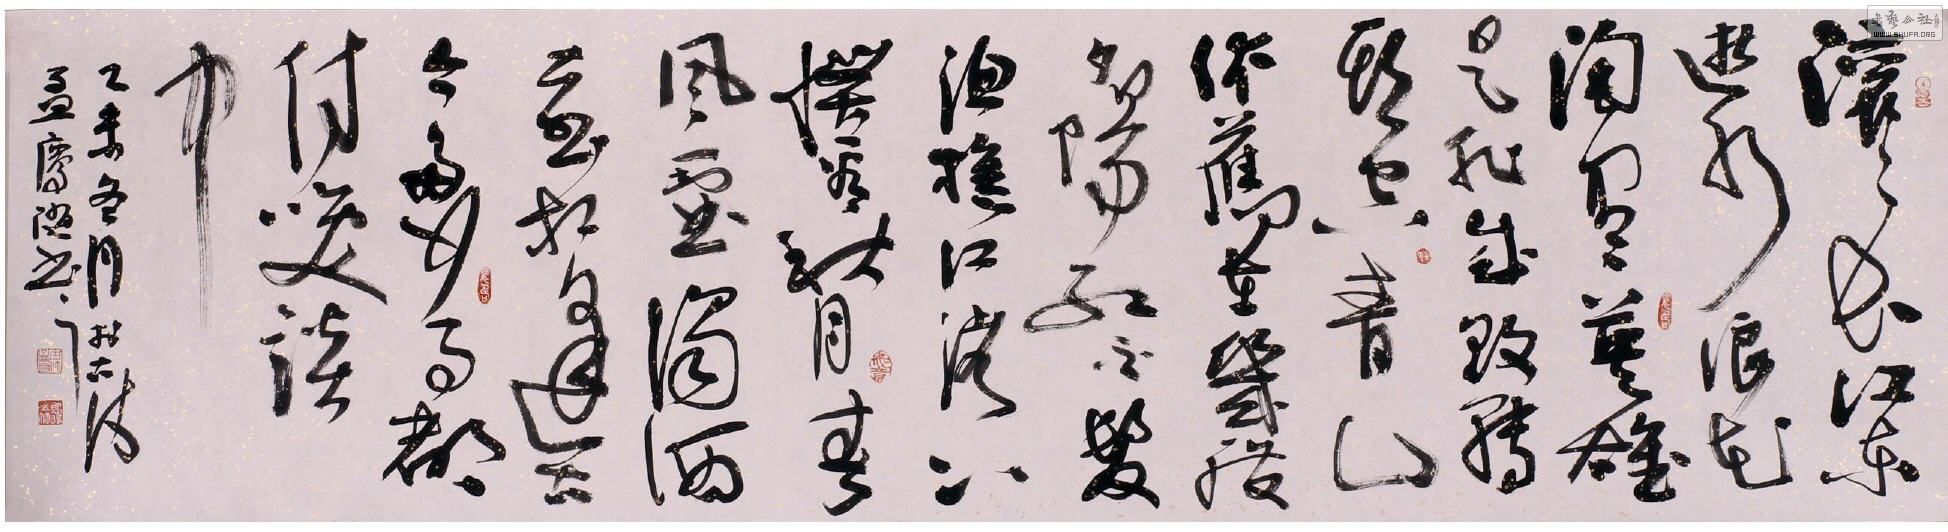 滾滾长江东
逝水浪花
淘尽英雄
是非成败转
头空青山
依舊在幾度
夕阳红白髮
渔樵江渚上
惯看秋月春
风一壶濁酒
喜相逢古
今多少事都
付笑谈
中
乙未冬月於古
孟慶书
书艺公社
WWW.SHUFA.ORG